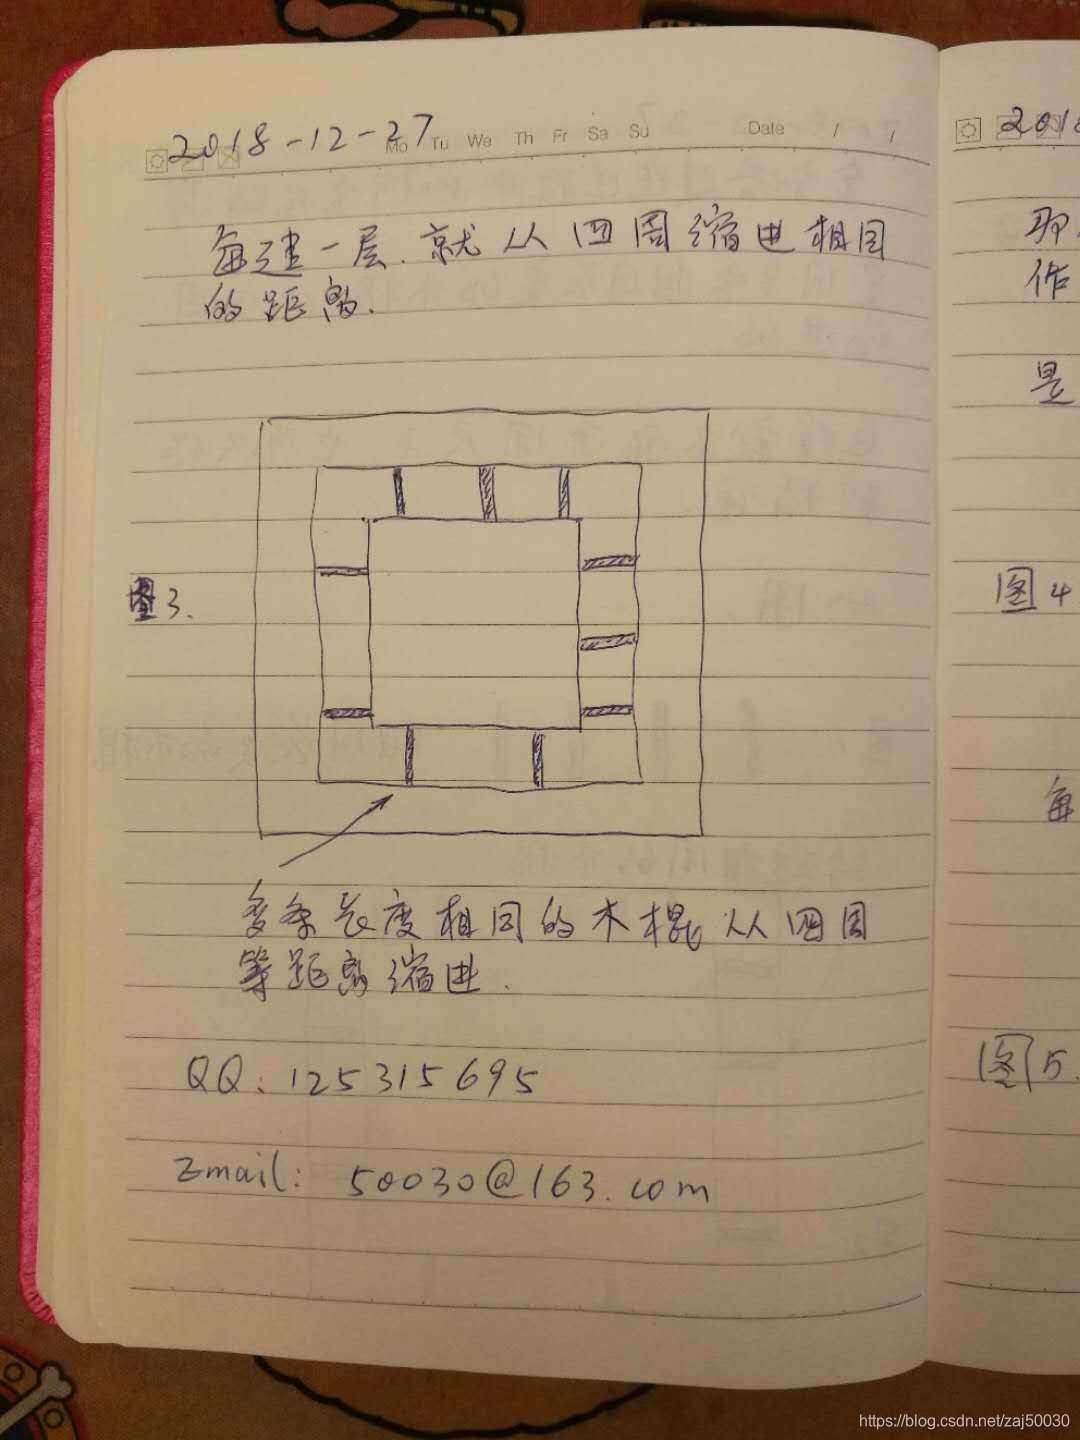 2018-12-27
Mo Tu We Th Fr Sa Su Date / /
每建一层.就从四周缩进相同
的距离.
图3.
多条长度相同的木棍从四周
等距离缩进.
QQ: 125315695
Email: 50030@163.com
2018
那
作
是
图4
每
图5.
https://blog.csdn.net/zaj50030